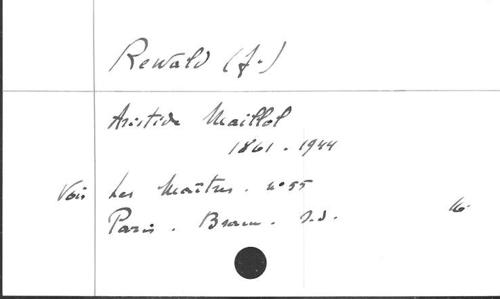 Rewald (J.)
Aristide Maillol
1861 - 1944
Voir Les Maîtres. n° 55
Paris. Braun. s.d. 16.